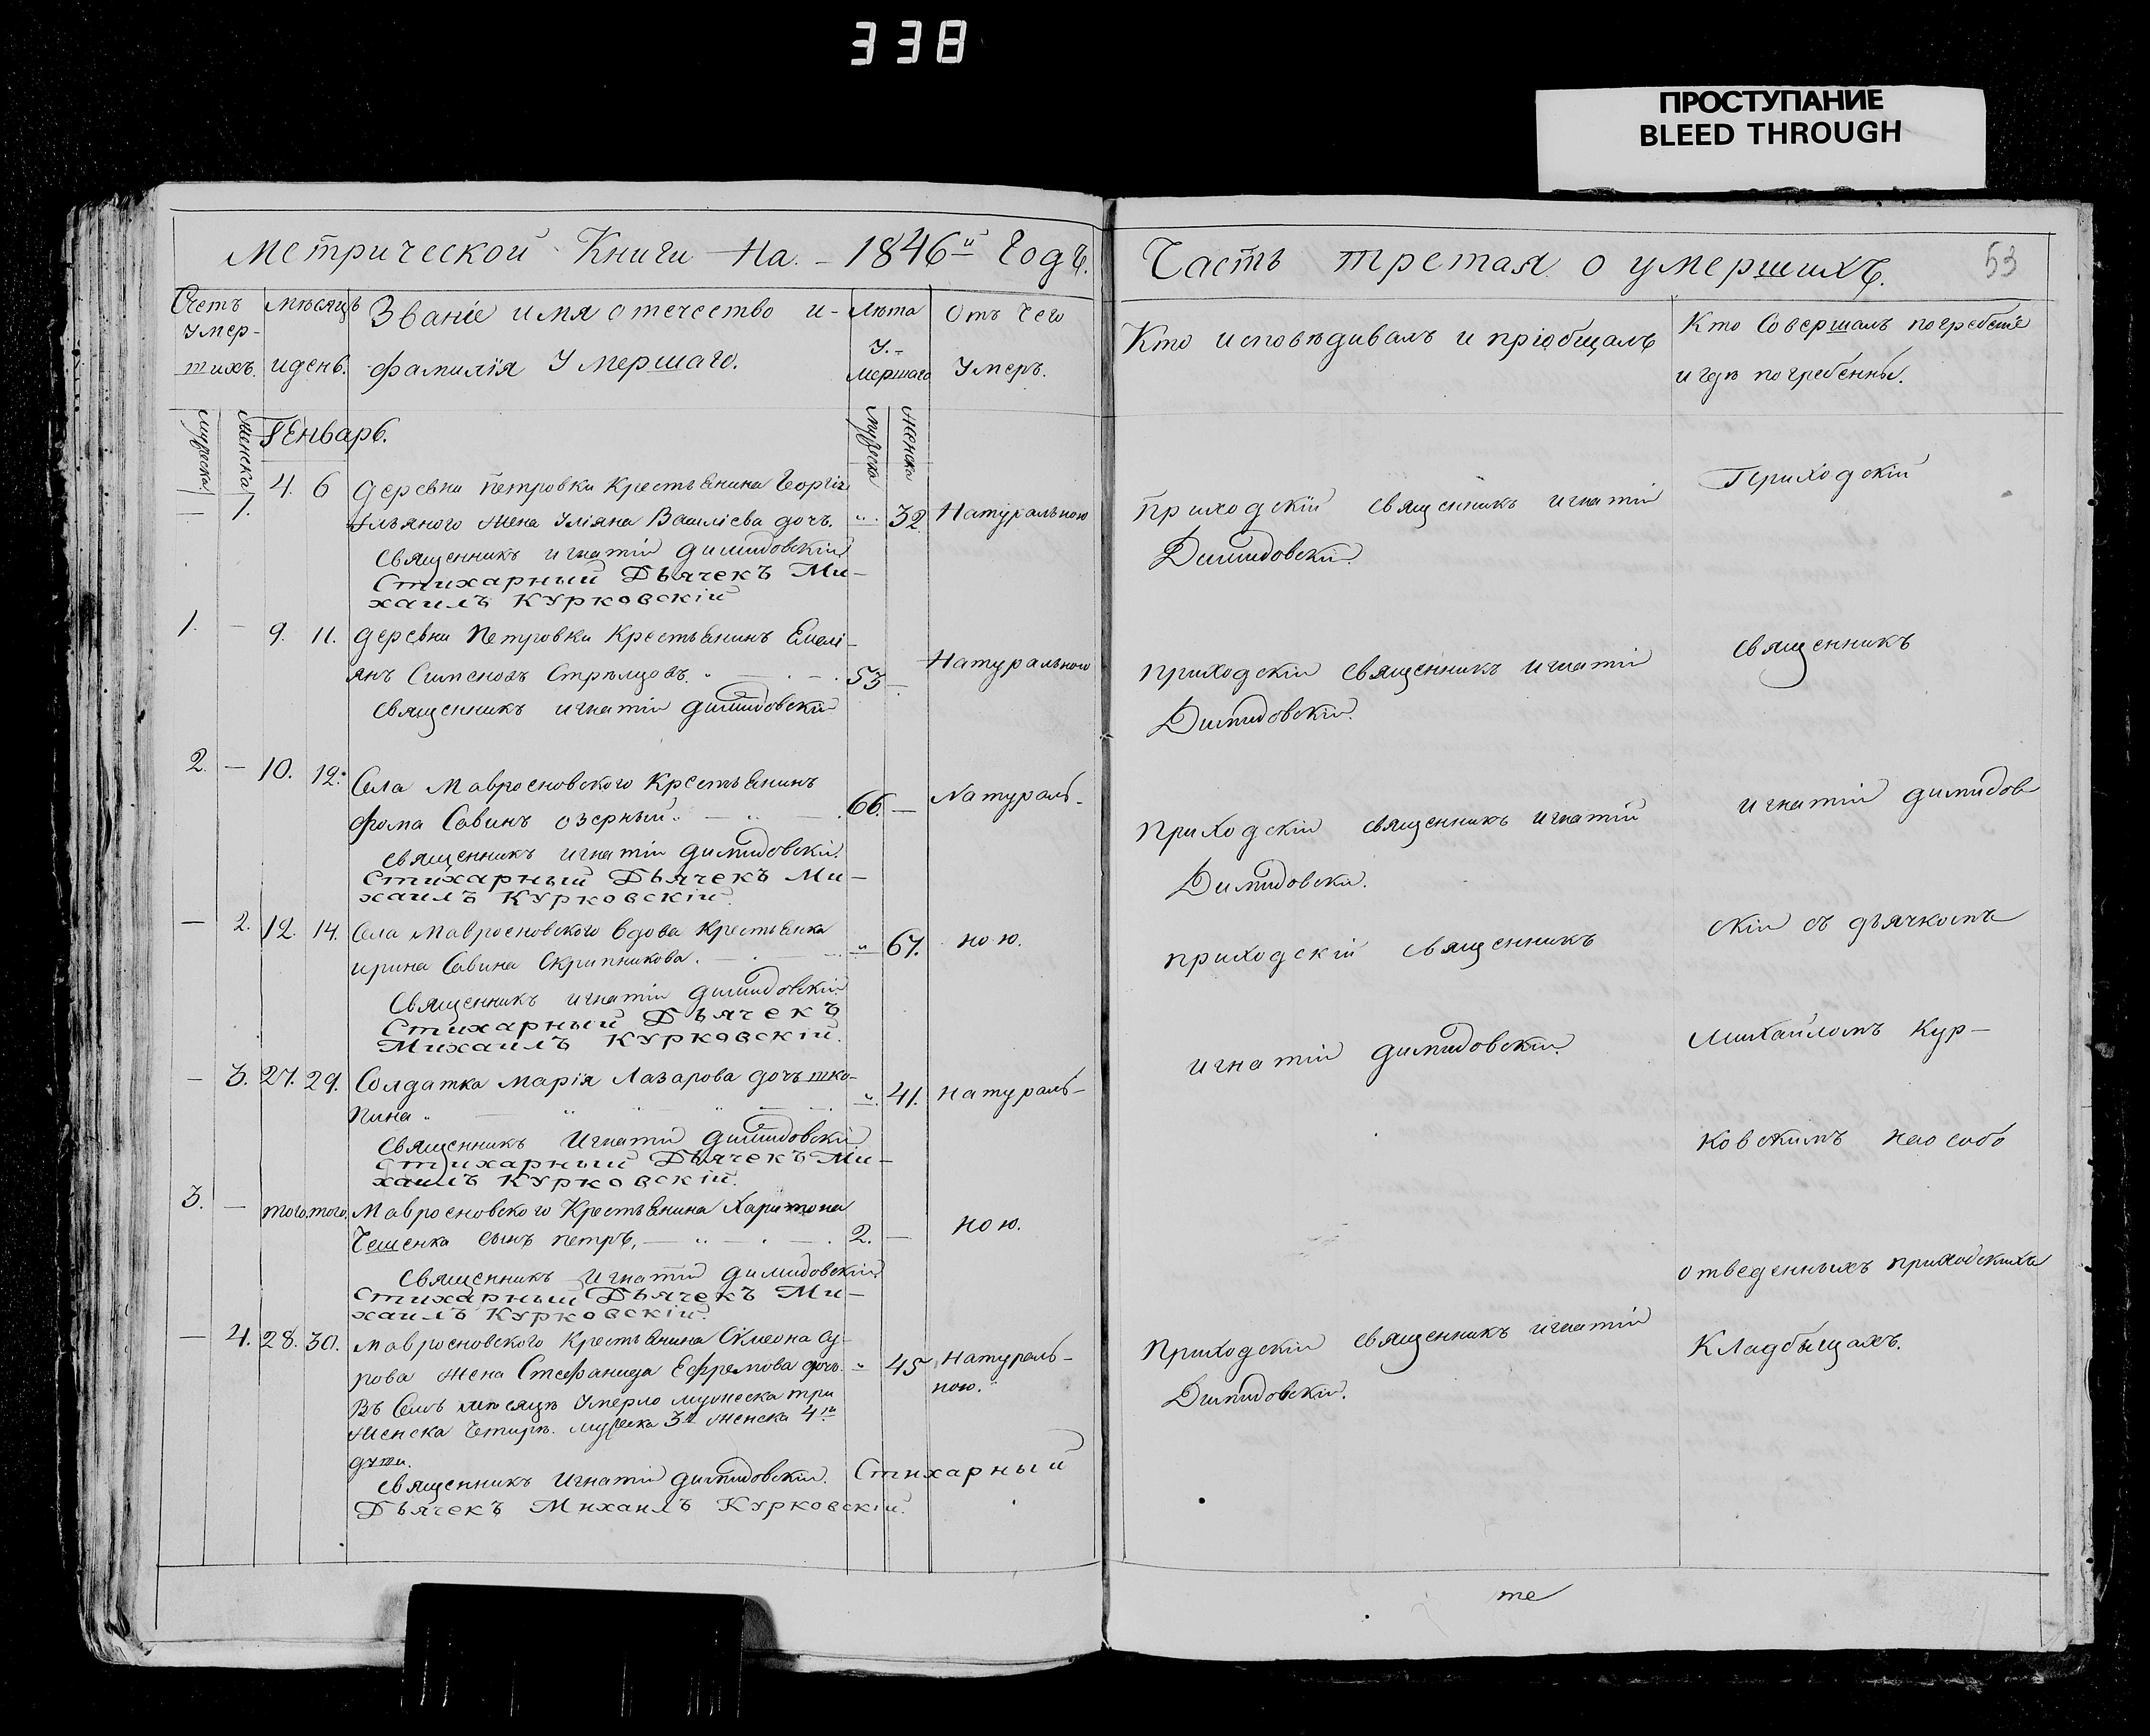 338
ПРОСТУПАНИЕ
BLEED THROUGH
Метрической Книги На 1846й Годъ.
Счетъ Умер-шихъ.
Мѣсяцъ и день.
Званіе имя отечество и фамилія Умершаго.
Лѣта У-мершаго
Отъ чего Умеръ.
мужеска
женска
мужеска
женска
Генварь.
– 1. 4. 6 деревни Петровки Крестьянина Георгія
жена Уліяна Василіева дочь. „ 32 Натуральною
Священникъ игнатій димидовскій
Стихарный Дьячекъ Ми-
хаилъ Курковскій
1. – 9. 11. деревни Петровки Крестьянинъ Емелі-
янъ Сименовъ Стрѣлцовъ. 53 – Натуральною
Священникъ игнатій димидовскій
2. – 10. 12. Села Мавросновского Крестьянинъ
фома Савинъ озерный. 66. – Натураль-
священникъ игнатій димидовскій.
Стихарный Дьячекъ Ми-
хаилъ Курковскій.
– 2. 12. 14. Села Мавросновского вдова крестьянка
ирина Савина Скрипникова. „ 67. ною.
Священникъ игнатій димидовскій
Стихарный Дьячекъ
Михаилъ Курковскій.
– 3. 27. 29. Солдатка Марія Лазарова дочь шко-
пина „ „ 41. Натураль-
Священникъ Игнатій димидовскій
Стихарный Дьячекъ Ми-
хаилъ Курковскій.
3. – того. того. Мавросновского Крестьянина Харитона
Чешенка сынъ петръ, 2. – ною.
Священникъ Игнатій димидовскій
Стихарный Дьячекъ Ми-
хаилъ Курковскій.
– 4. 28. 30. Мавросновского Крестьянина Симеона Су-
рова жена Стефанида Ефремова дочь. „ 45 Натураль-
ною.
Въ Семъ мѣсяцѣ Умерло мужеска три
женска Четыре. мужеска 3 женска 4
Священникъ Игнатій димидовскій. Стихарный
Дьячекъ Михаилъ Курковскій.
Часть третая о умершихъ.
53
Кто исповѣдивалъ и пріобщалъ
Кто Совершалъ погребеніе
и гдѣ погребенны.
приходскій священникъ игнатій
Димидовскій.
приходскій священникъ игнатій
Димидовскій.
приходскій священникъ игнатій
Димидовскій.
приходскій священникъ
игнатій димидовскій.
приходскій священникъ игнатій
Димидовскій.
Приходскій
священникъ
игнатій димидов
скій съ дьячкомъ
Михайломъ Кур-
ковскимъ на особо
отведенныхъ приходскихъ
Кладбищахъ.
те